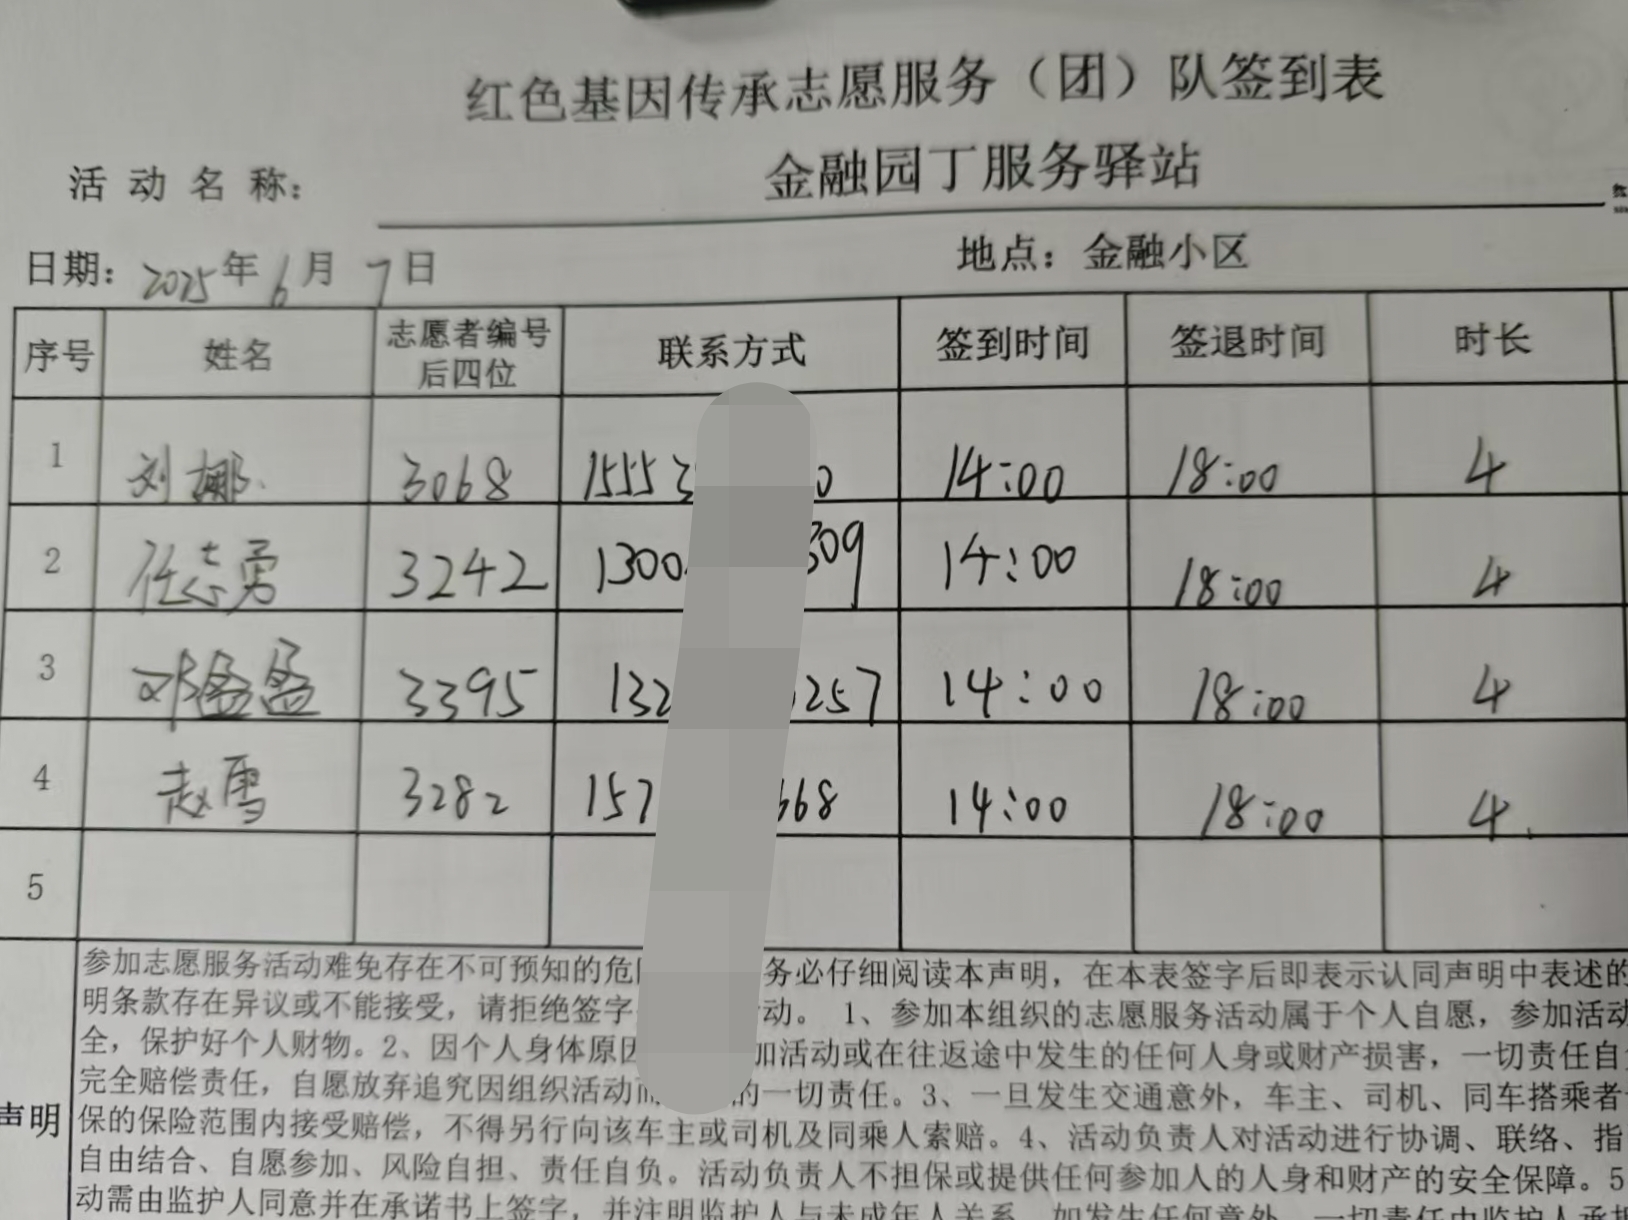 红色基因传承志愿服务（团）队签到表
活动名称： 金融园丁服务驿站
日期：2025年6月7日 地点：金融小区
序号 姓名 志愿者编号后四位 联系方式 签到时间 签退时间 时长
1 刘娜 3068 1553 0 14:00 18:00 4
2 任志勇 3242 1300 309 14:00 18:00 4
3 邓盈盈 3395 132 257 14:00 18:00 4
4 赵雪 3282 157 668 14:00 18:00 4
5
参加志愿服务活动难免存在不可预知的危 务必仔细阅读本声明，在本表签字后即表示认同声明中表述的
明条款存在异议或不能接受，请拒绝签字 动。 1、参加本组织的志愿服务活动属于个人自愿，参加活动
全，保护好个人财物。2、因个人身体原因 加活动或在往返途中发生的任何人身或财产损害，一切责任自
完全赔偿责任，自愿放弃追究因组织活动而 的一切责任。3、一旦发生交通意外，车主、司机、同车搭乘者
声明 保的保险范围内接受赔偿，不得另行向该车主或司机及同乘人索赔。4、活动负责人对活动进行协调、联络、指
自由结合、自愿参加、风险自担、责任自负。活动负责人不担保或提供任何参加人的人身和财产的安全保障。5
动需由监护人同意并在承诺书上签字，并注明监护人与未成年人关系，如发生任何意外，一切责任由监护人承担